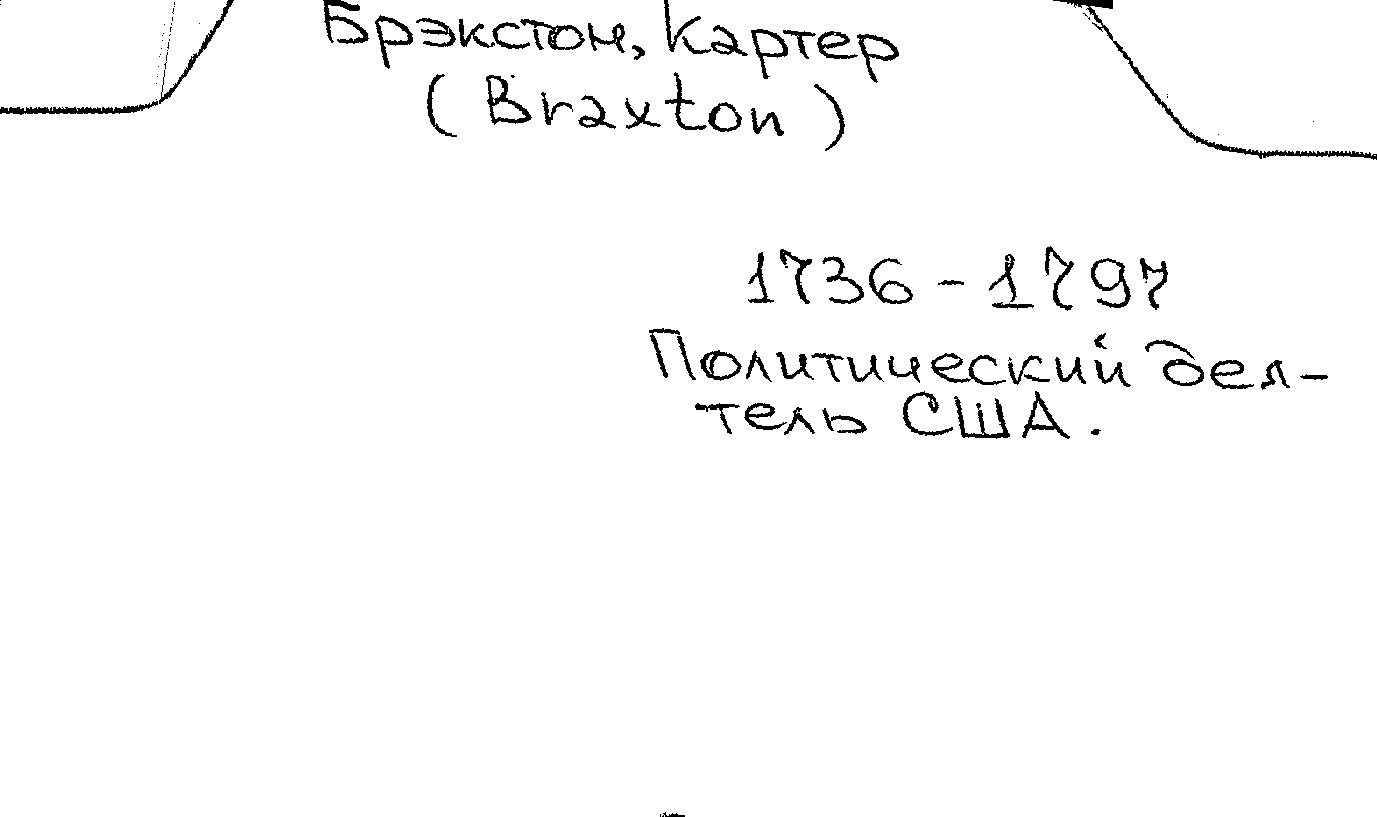 Брэкстон, Картер
(Braxton)
1736-1797
Политический дея-
тель США.